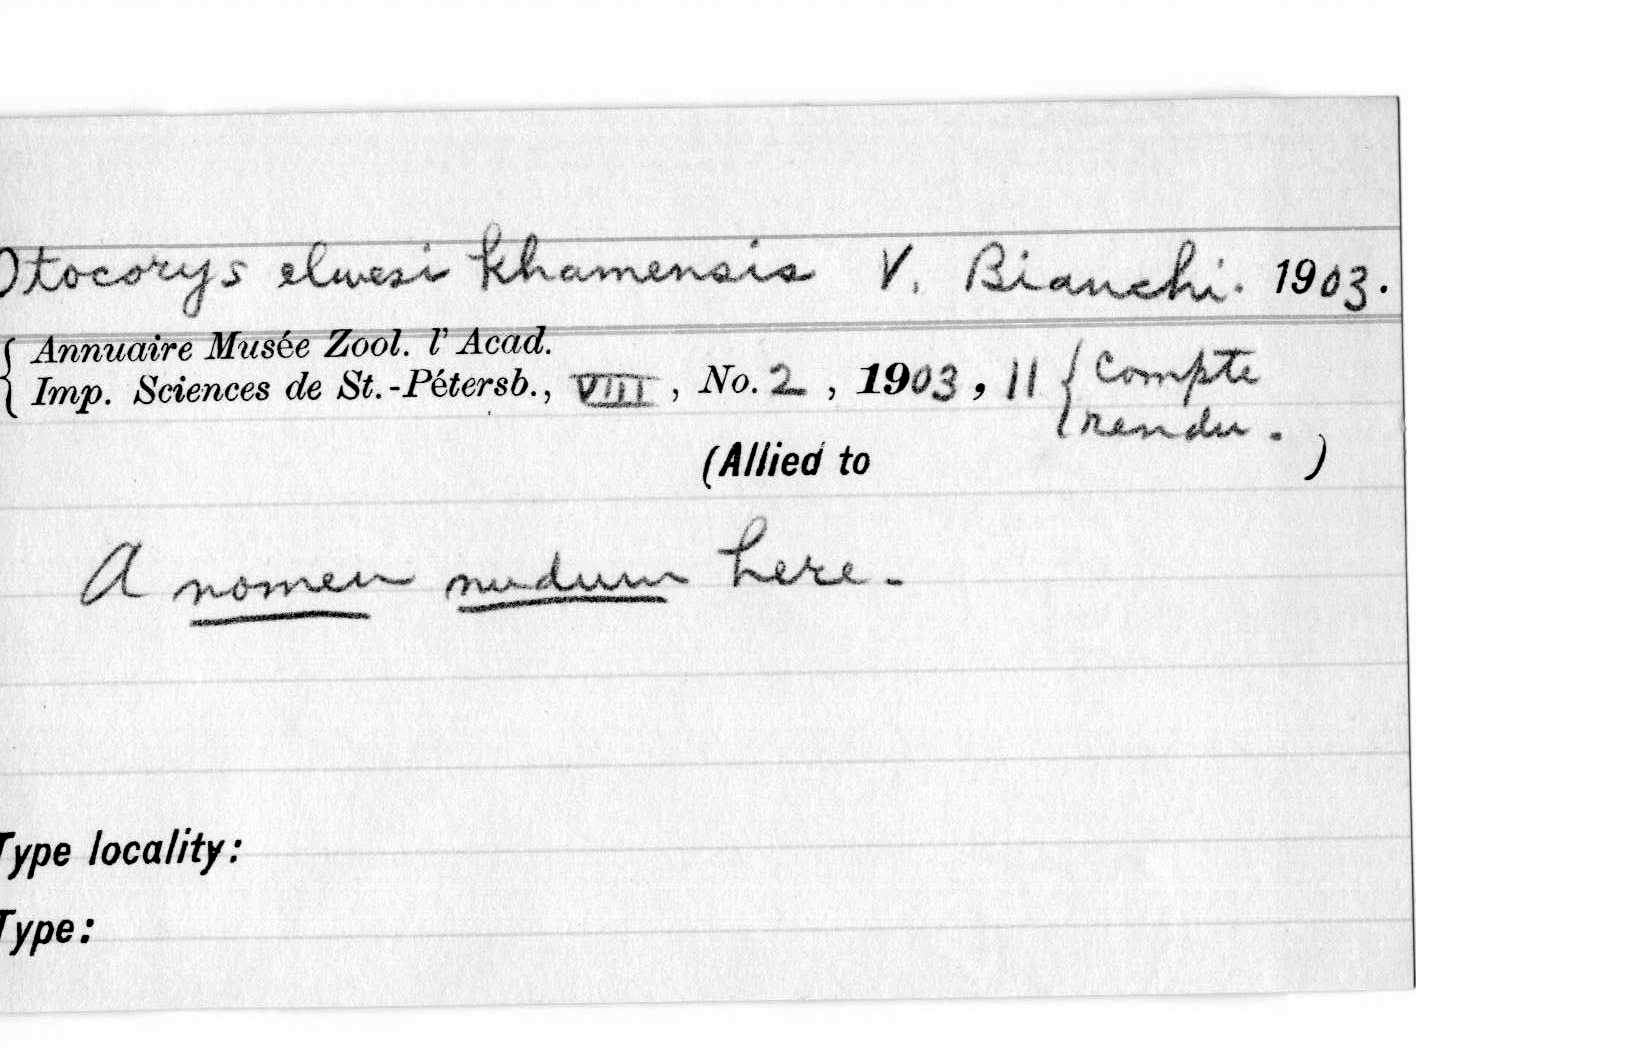 Otocorys elwesi khamensis V. Bianchi. 1903.
Annuaire Musée Zool. l' Acad.
Imp. Sciences de St.-Pétersb., VIII, No. 2, 1903, 11 { Compte
rendu.
(Allied to )
A nomen nudum here.
Type locality:
Type: